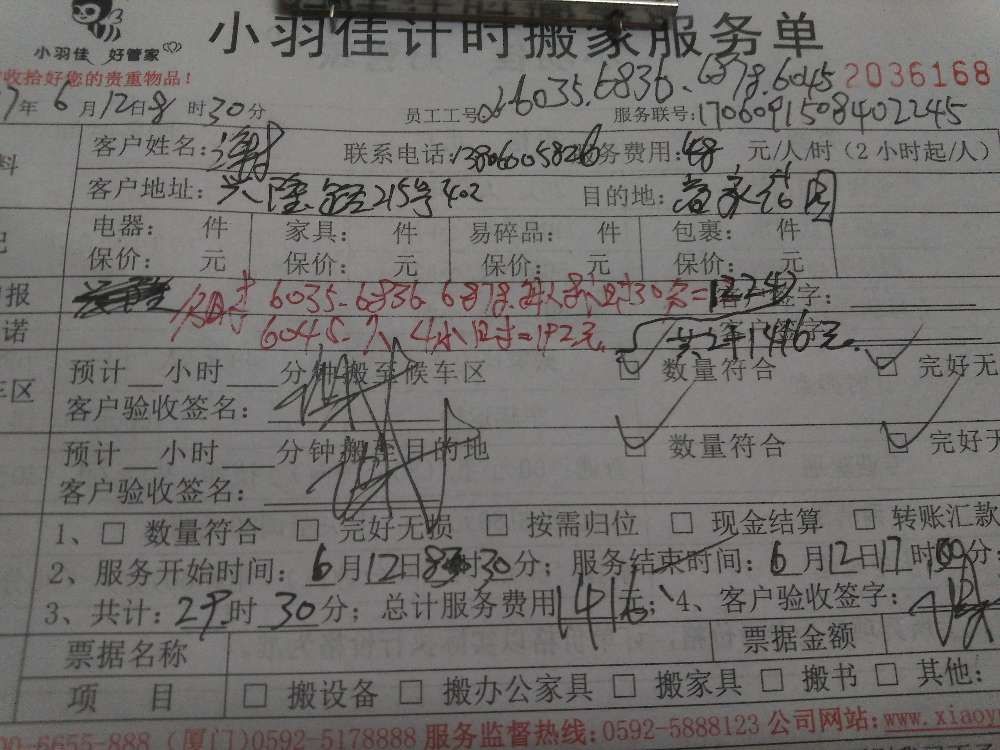 小羽佳 好管家
小羽佳计时搬家服务单
收拾好您的贵重物品!
6035.6836.6878.6045 2036168
7年6月12日8时30分 员工工号: 服务联号:1706091508402245
客户姓名:谢 联系电话:13860058266 务费用:48元/人/时(2小时起/人)
客户地址:兴隆路215号402 目的地:
电器: 件 家具: 件 易碎品: 件 包裹: 件
保价: 元 保价: 元 保价: 元 保价: 元
报 6035-6836 6878 30分=1224 签字:
诺 6045- 4小时=192元 共计1416元。
车区 预计__小时___分钟搬至候车区 数量符合 完好无
客户验收签名:
预计__小时___分钟搬至目的地 数量符合 完好无
客户验收签名:
1、□ 数量符合 □ 完好无损 □ 按需归位 □ 现金结算 □ 转账汇款
2、服务开始时间:6月12日8时30分;服务结束时间:6月12日17时00分;
3、共计:29时30分;总计服务费用 元;4、客户验收签字:
票据名称 票据金额
项 目 □ 搬设备 □ 搬办公家具 □ 搬家具 □ 搬书 □ 其他:
00-6655-888 (厦门)0592-5178888 服务监督热线:0592-5888123 公司网站:www.xiaoy